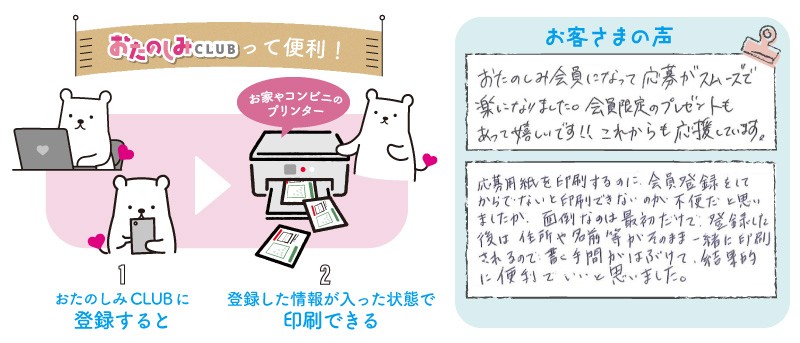 おたのしみCLUBって便利！
お家やコンビニの
プリンター
1
おたのしみCLUBに
登録すると
2
登録した情報が入った状態で
印刷できる
お客さまの声
おたのしみ会員になって応募がスムーズで
楽になりました。会員限定のプレゼントも
あって嬉しいです!! これからも応援しています。
応募用紙を印刷するのに、会員登録をして
からでないと印刷できないのが不便だと思い
ましたが、面倒なのは最初だけで、登録した
後は住所や名前等がそのまま一緒に印刷
されるので書く手間がはぶけて、結果的
に便利でいいと思いました。